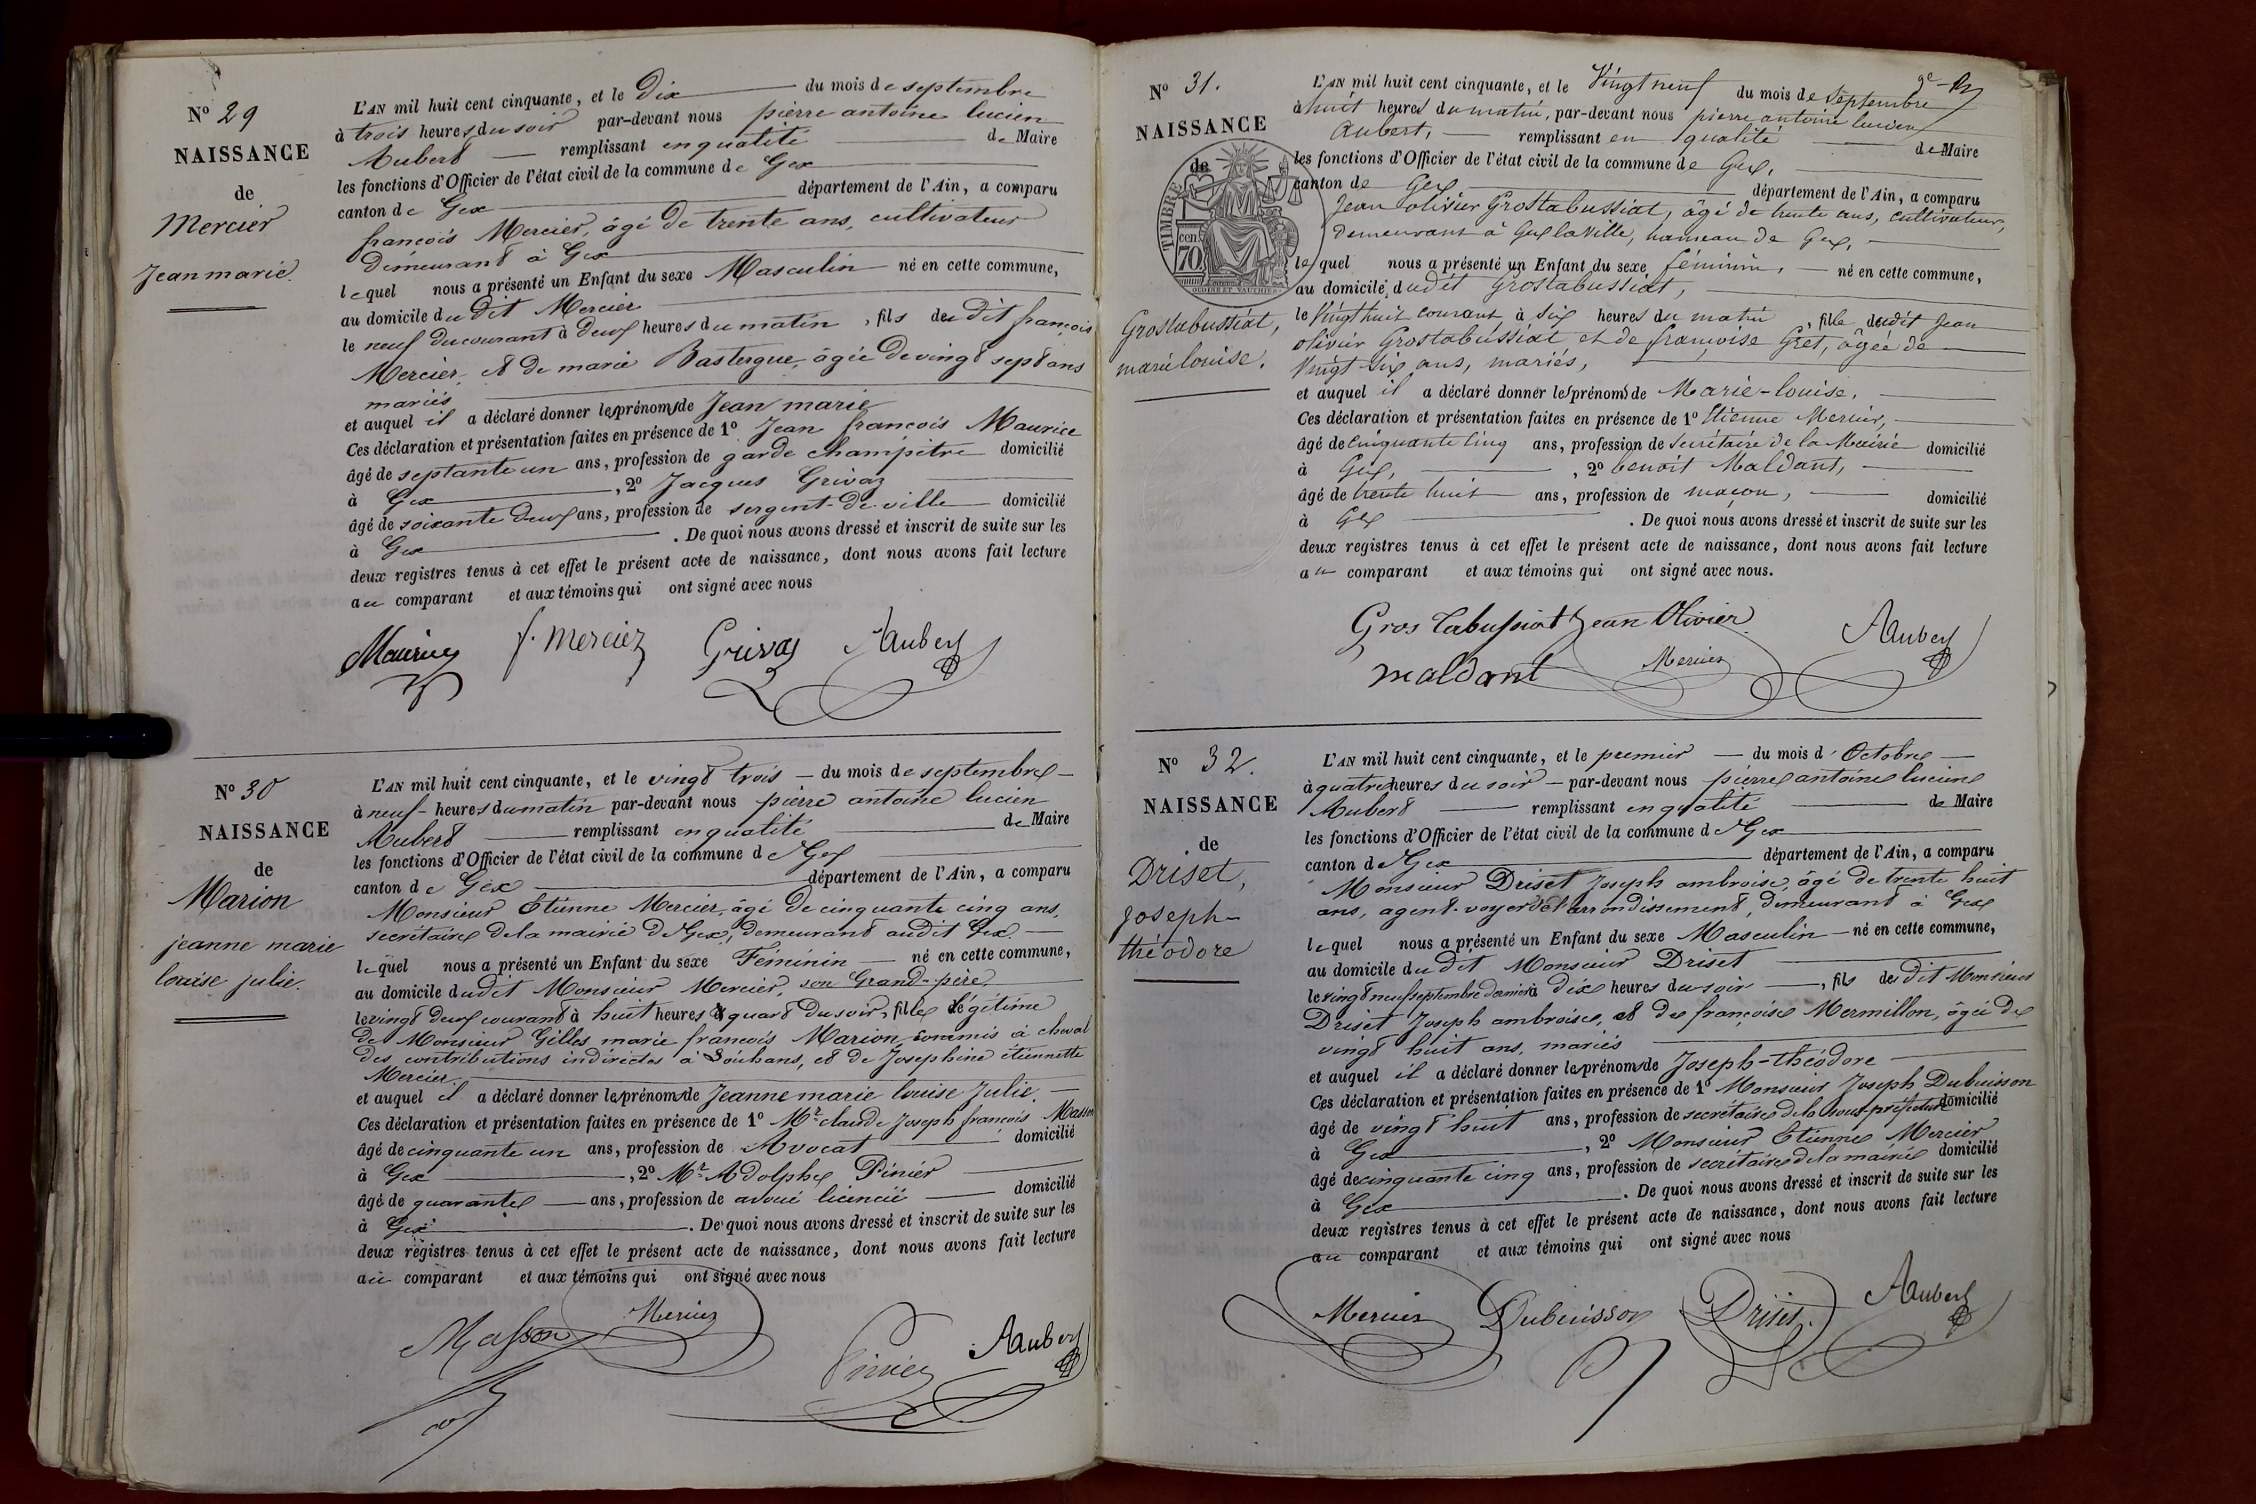 N° 29
NAISSANCE
de
Mercier
Jean marie.
L'AN mil huit cent cinquante, et le Dix du mois de septembre
à trois heures du soir par-devant nous pierre antoine lucien
Aubert remplissant en qualité de Maire
les fonctions d'Officier de l'état civil de la commune de Gex
canton de Gex département de l'Ain, a comparu
françois Mercier, âgé de trente ans, cultivateur
demeurant à Gex
lequel nous a présenté un Enfant du sexe Masculin né en cette commune,
au domicile du dit Mercier
le neuf du courant à deux heures du matin, fils du dit françois
Mercier, et de marie Bastergue, âgée de vingt sept ans
mariés
et auquel il a déclaré donner les prénoms de Jean marie
Ces déclaration et présentation faites en présence de 1° Jean françois Maurice
âgé de septante un ans, profession de garde champêtre domicilié
à Gex, 2° Jacques Grivaz
âgé de soixante deux ans, profession de sergent de ville domicilié
à Gex. De quoi nous avons dressé et inscrit de suite sur les
deux registres tenus à cet effet le présent acte de naissance, dont nous avons fait lecture
au comparant et aux témoins qui ont signé avec nous
Maurice f. mercier Grivaz Aubert
N° 30
NAISSANCE
de
Marion
jeanne marie
louise julie.
L'AN mil huit cent cinquante, et le vingt trois du mois de septembre
à neuf heures du matin par-devant nous pierre antoine lucien
Aubert remplissant en qualité de Maire
les fonctions d'Officier de l'état civil de la commune de Gex
canton de Gex département de l'Ain, a comparu
Monsieur Etienne Mercier, âgé de cinquante cinq ans,
secrétaire de la mairie de Gex, demeurant audit Gex.
lequel nous a présenté un Enfant du sexe Féminin né en cette commune,
au domicile dudit Monsieur Mercier, son Grand-père
le vingt deux courant à huit heures quart du soir, fille légitime
de Monsieur Gilles marie françois Marion commis à cheval
des contributions indirectes à Louhans, et de Josephine étiennette
Mercier
et auquel il a déclaré donner les prénoms de Jeanne marie louise Julie.
Ces déclaration et présentation faites en présence de 1° Mr claude Joseph françois Masson
âgé de cinquante un ans, profession de Avocat domicilié
à Gex, 2° Mr Adolphe Pinier
âgé de quarante ans, profession de avoué licencié domicilié
à Gex. De quoi nous avons dressé et inscrit de suite sur les
deux registres tenus à cet effet le présent acte de naissance, dont nous avons fait lecture
au comparant et aux témoins qui ont signé avec nous
Masson Mercier Pinier Aubert
N° 31.
NAISSANCE
de
TIMBRE
cen. 70
Grostabussiat,
marie louise.
L'AN mil huit cent cinquante, et le Vingt neuf du mois de Septembre
à huit heures du matin, par-devant nous pierre antoine lucien
Aubert, remplissant en qualité de Maire
les fonctions d'Officier de l'état civil de la commune de Gex,
canton de Gex département de l'Ain, a comparu
Jean olivier Grostabussiat, âgé de trente ans, cultivateur,
demeurant à Gex la Ville, hameau de Gex,
lequel nous a présenté un Enfant du sexe féminin, né en cette commune,
au domicile dudit Grostabussiat,
le Vingt huit courant à six heures du matin, fille dudit Jean
olivier Grostabussiat et de françoise Gret, âgée de
Vingt six ans, mariés,
et auquel il a déclaré donner les prénoms de Marie-louise.
Ces déclaration et présentation faites en présence de 1° Etienne Mercier,
âgé de cinquante cinq ans, profession de secrétaire de la Mairie domicilié
à Gex, 2° benoit Maldant,
âgé de trente huit ans, profession de maçon, domicilié
à Gex. De quoi nous avons dressé et inscrit de suite sur les
deux registres tenus à cet effet le présent acte de naissance, dont nous avons fait lecture
au comparant et aux témoins qui ont signé avec nous.
Gros tabussiat Jean Olivier Aubert
maldant Mercier
N° 32.
NAISSANCE
de
Driset,
joseph-
théodore
L'AN mil huit cent cinquante, et le premier du mois d'Octobre
à quatre heures du soir par-devant nous pierre antoine lucien
Aubert remplissant en qualité de Maire
les fonctions d'Officier de l'état civil de la commune de Gex
canton de Gex département de l'Ain, a comparu
Monsieur Driset Joseph ambroise, âgé de trente huit
ans, agent-voyer d'arrondissement, demeurant à Gex
lequel nous a présenté un Enfant du sexe Masculin né en cette commune,
au domicile du dit Monsieur Driset
le vingt neuf septembre dernier à dix heures du soir, fils du dit Monsieur
Driset Joseph ambroise, et de françoise Mermillon, âgée de
vingt huit ans, mariés
et auquel il a déclaré donner les prénoms de Joseph-théodore
Ces déclaration et présentation faites en présence de 1° Monsieur Joseph Dubuisson
âgé de vingt huit ans, profession de secrétaire de la sous-préfecture domicilié
à Gex, 2° Monsieur Etienne Mercier
âgé de cinquante cinq ans, profession de secrétaire de la mairie domicilié
à Gex. De quoi nous avons dressé et inscrit de suite sur les
deux registres tenus à cet effet le présent acte de naissance, dont nous avons fait lecture
au comparant et aux témoins qui ont signé avec nous
Mercier Dubuisson Driset Aubert